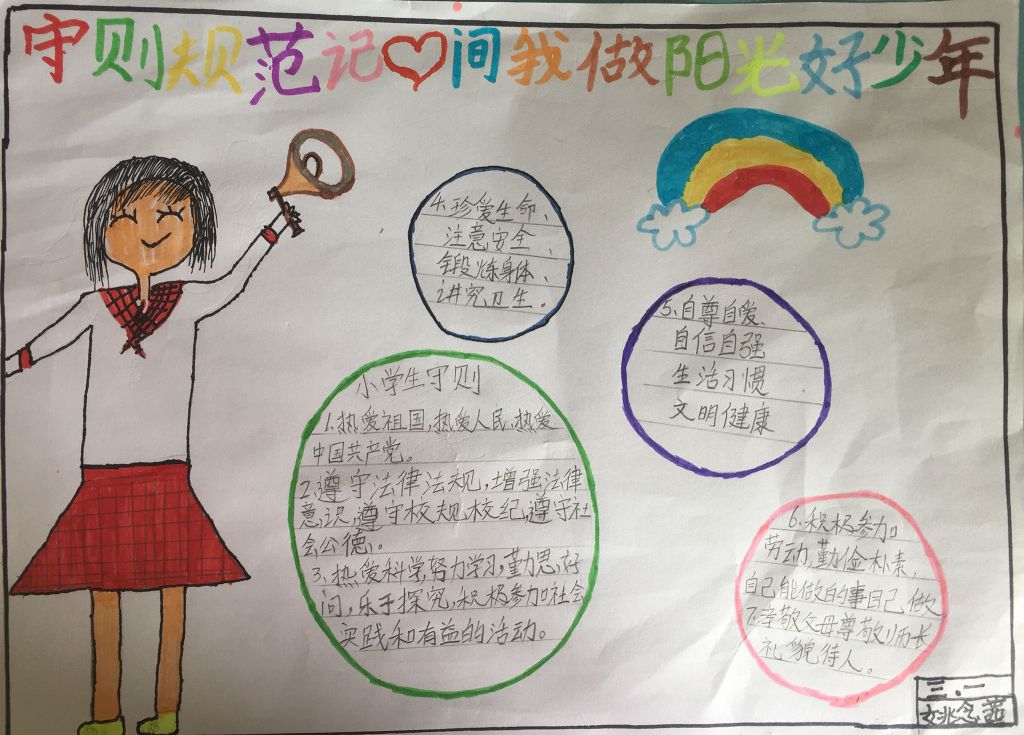 守则规范记间我做阳光好少年
4.珍爱生命、
注意安全、
锻炼身体、
讲究卫生。
5.自尊自爱、
自信自强
生活习惯
文明健康
小学生守则
1.热爱祖国,热爱人民、热爱
中国共产党。
2.遵守法律法规,增强法律
意识,遵守校规校纪,遵守社
会公德。
3.热爱科学,努力学习,勤思好
问,乐于探究,积极参加社会
实践和有益的活动。
6.积极参加
劳动,勤俭朴素,
自己能做的事自己做
7.孝敬父母尊敬师长
礼貌待人。
三.一
姚念